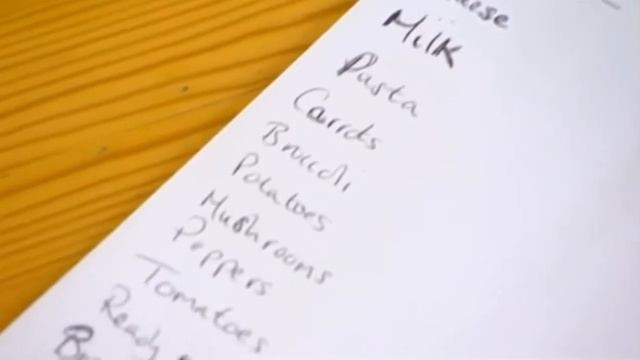 Milk
Pasta
Carrots
Broccoli
Potatoes
Mushrooms
Peppers
Tomatoes
Ready